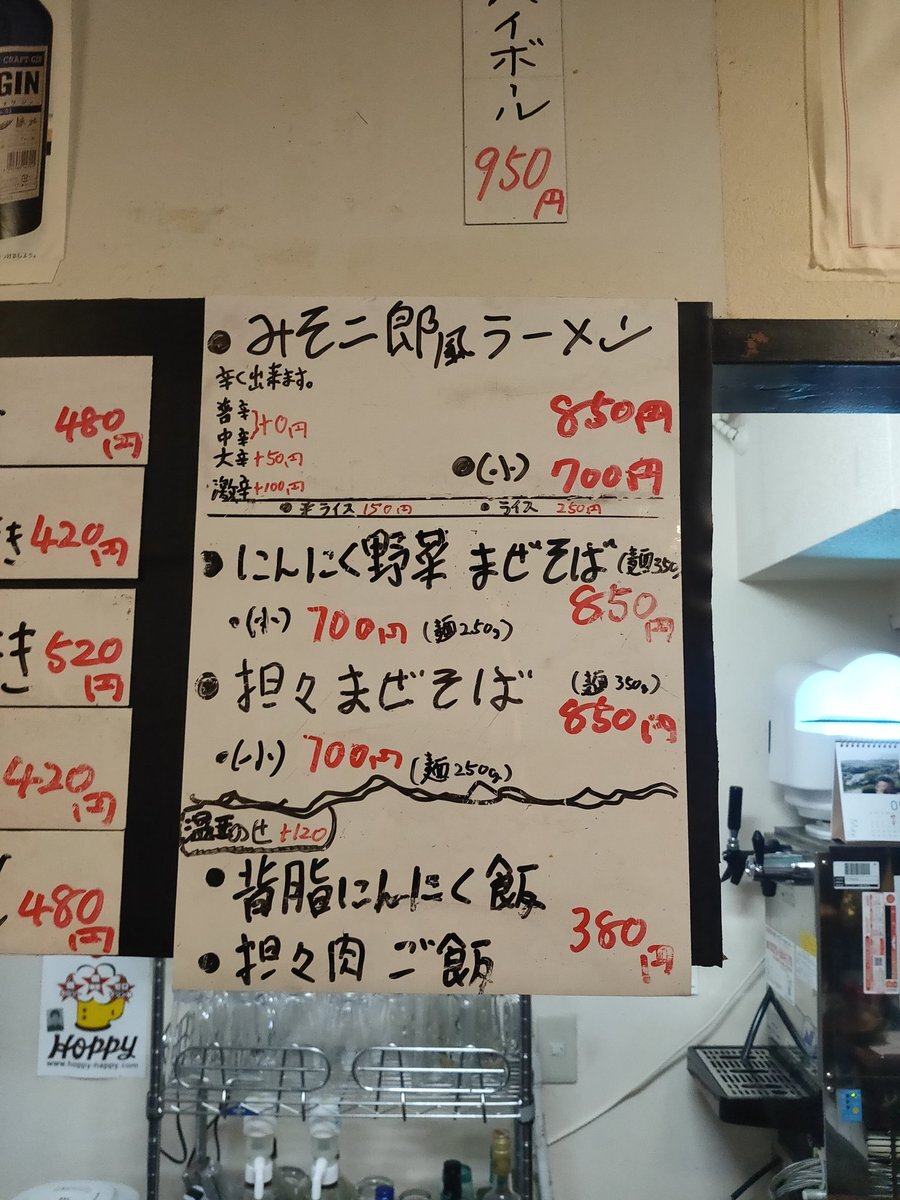 CRAFT GIN
GIN
イボール
950円
480円
き 420円
き 520円
420円
480円
●みそ二郎風ラーメン
辛く出来ます。
普辛
中辛 }+0円
大辛 +50円
激辛 +100円
850円
●(小) 700円
●半ライス 150円 ●ライス 250円
●にんにく野菜 まぜそば(麺350
850円
•(小) 700円 (麺250g)
●担々まぜそば (麺350g)
850円
•(小) 700円 (麺250g)
温玉のせ +120
●背脂にんにく飯
380円
●担々肉ご飯
HOPPY
www.hoppy-happy.com